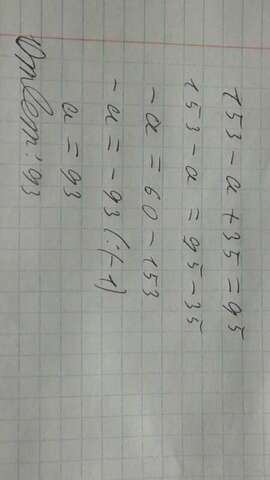 153 - a + 35 = 95
153 - a = 95 - 35
- a = 60 - 153
- a = - 93 (:(-1)
a = 93
Ответ: 93